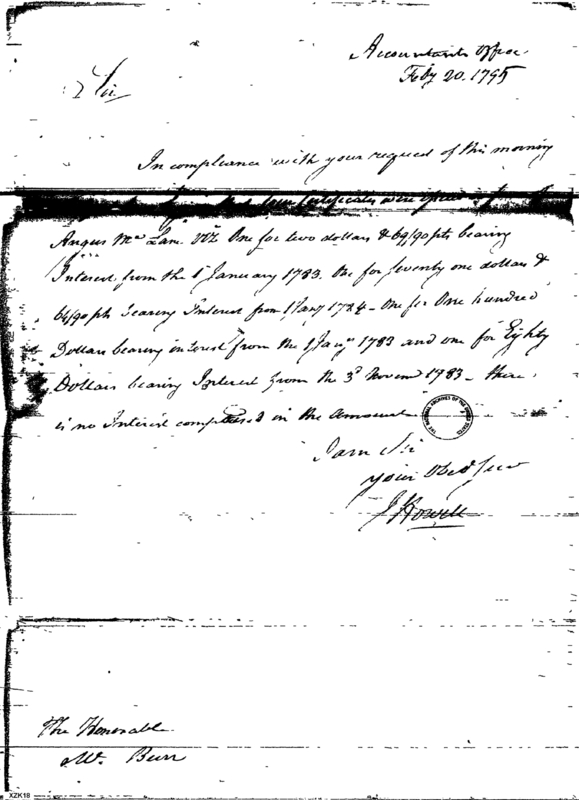 Accountants Office
Feby 20. 1795
Sir
In compliance with your request of this morning
Certificates were issued
Angus Mc Lam. Vizt One for two dollars & 69/90 pts bearing
Interest from the 1t January 1783. One for seventy one dollars &
64/90 pts bearing Interest from 1 Jany 1784 - One for One hundred
Dollars bearing interest from the 1 Jany 1783 and one for Eighty
Dollars bearing Interest from the 3d Novem 1783 - there
is no Interest comprised in the Amount
THE NATIONAL ARCHIVES OF THE UNITED STATES
I am Sir
your Obed Serv
J Howell
The Honorable
Mr. Burr
XZK18